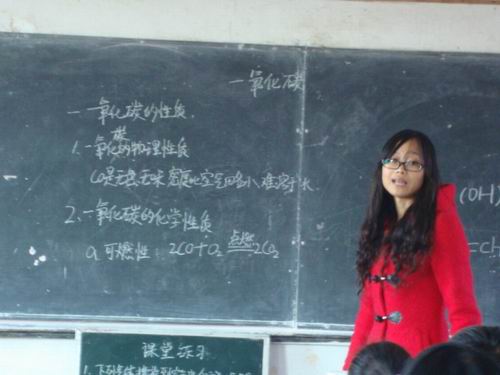 一氧化碳
一、一氧化碳的性质
1、一氧化碳的物理性质
CO是无色无味 密度比空气略小、难溶于水
2、一氧化碳的化学性质
a 可燃性 2CO+O2 点燃 2CO2
(OH)
课堂练习
1、下列